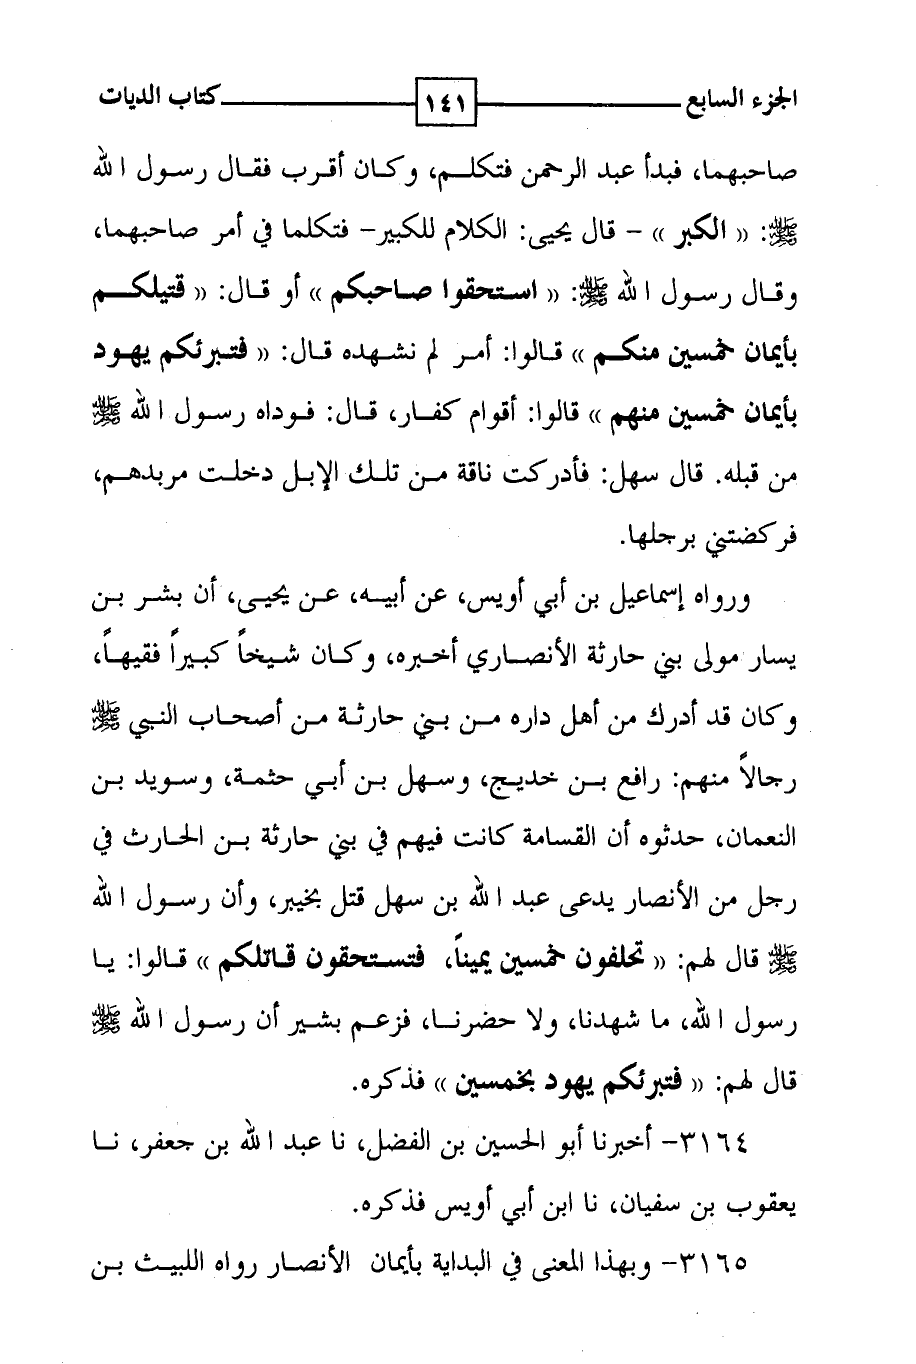 الجزء السابع ١٤١ كتاب الديات
صاحبهما، فبدأ عبد الرحمن فتكلم، وكان أقرب فقال رسول الله
ﷺ: « الكبر » - قال يحيى: الكلام للكبير- فتكلما في أمر صاحبهما،
وقال رسول الله ﷺ: « استحقوا صاحبكم » أو قال: « قتيلكم
بأيمان خمسين منكم » قالوا: أمر لم نشهده قال: « فتبرئكم يهود
بأيمان خمسين منهم » قالوا: أقوام كفار، قال: فوداه رسول الله ﷺ
من قبله. قال سهل: فأدركت ناقة من تلك الإبل دخلت مربدهم،
فركضتني برجلها.
ورواه إسماعيل بن أبي أويس، عن أبيه، عن يحيى، أن بشر بن
يسار مولى بني حارثة الأنصاري أخبره، وكان شيخاً كبيراً فقيهاً،
وكان قد أدرك من أهل داره من بني حارثة من أصحاب النبي ﷺ
رجالاً منهم: رافع بن خديج، وسهل بن أبي حثمة، وسويد بن
النعمان، حدثوه أن القسامة كانت فيهم في بني حارثة بن الحارث في
رجل من الأنصار يدعى عبد الله بن سهل قتل بخيبر، وأن رسول الله
ﷺ قال لهم: « تحلفون خمسين يميناً، فتستحقون قاتلكم » قالوا: يا
رسول الله، ما شهدنا، ولا حضرنا، فزعم بشير أن رسول الله ﷺ
قال لهم: « فتبرئكم يهود بخمسين » فذكره.
٣١٦٤- أخبرنا أبو الحسين بن الفضل، نا عبد الله بن جعفر، نا
يعقوب بن سفيان، نا ابن أبي أويس فذكره.
٣١٦٥- وبهذا المعنى في البداية بأيمان الأنصار رواه الليث بن